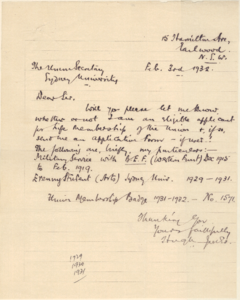 15 Hamilton Ave,
Earlwood
N.S.W.
Feb. 3rd 1933.
The Union Secretary
Sydney University
Dear Sir,
Will you please let me know
whether or not I am an eligible applicant
for life membership of the Union &, if so,
send me an application form if used.
The following are, briefly, my particulars:—
Military Service with A.I.F. (Western Front) Dec 1915
to Feb. 1919.
Evening Student (Arts) Sydney Univ. 1929-1931.
Union Membership Badge 1931-1932. — No. 1591.
Thanking you
Yours faithfully
1929
1930
1931